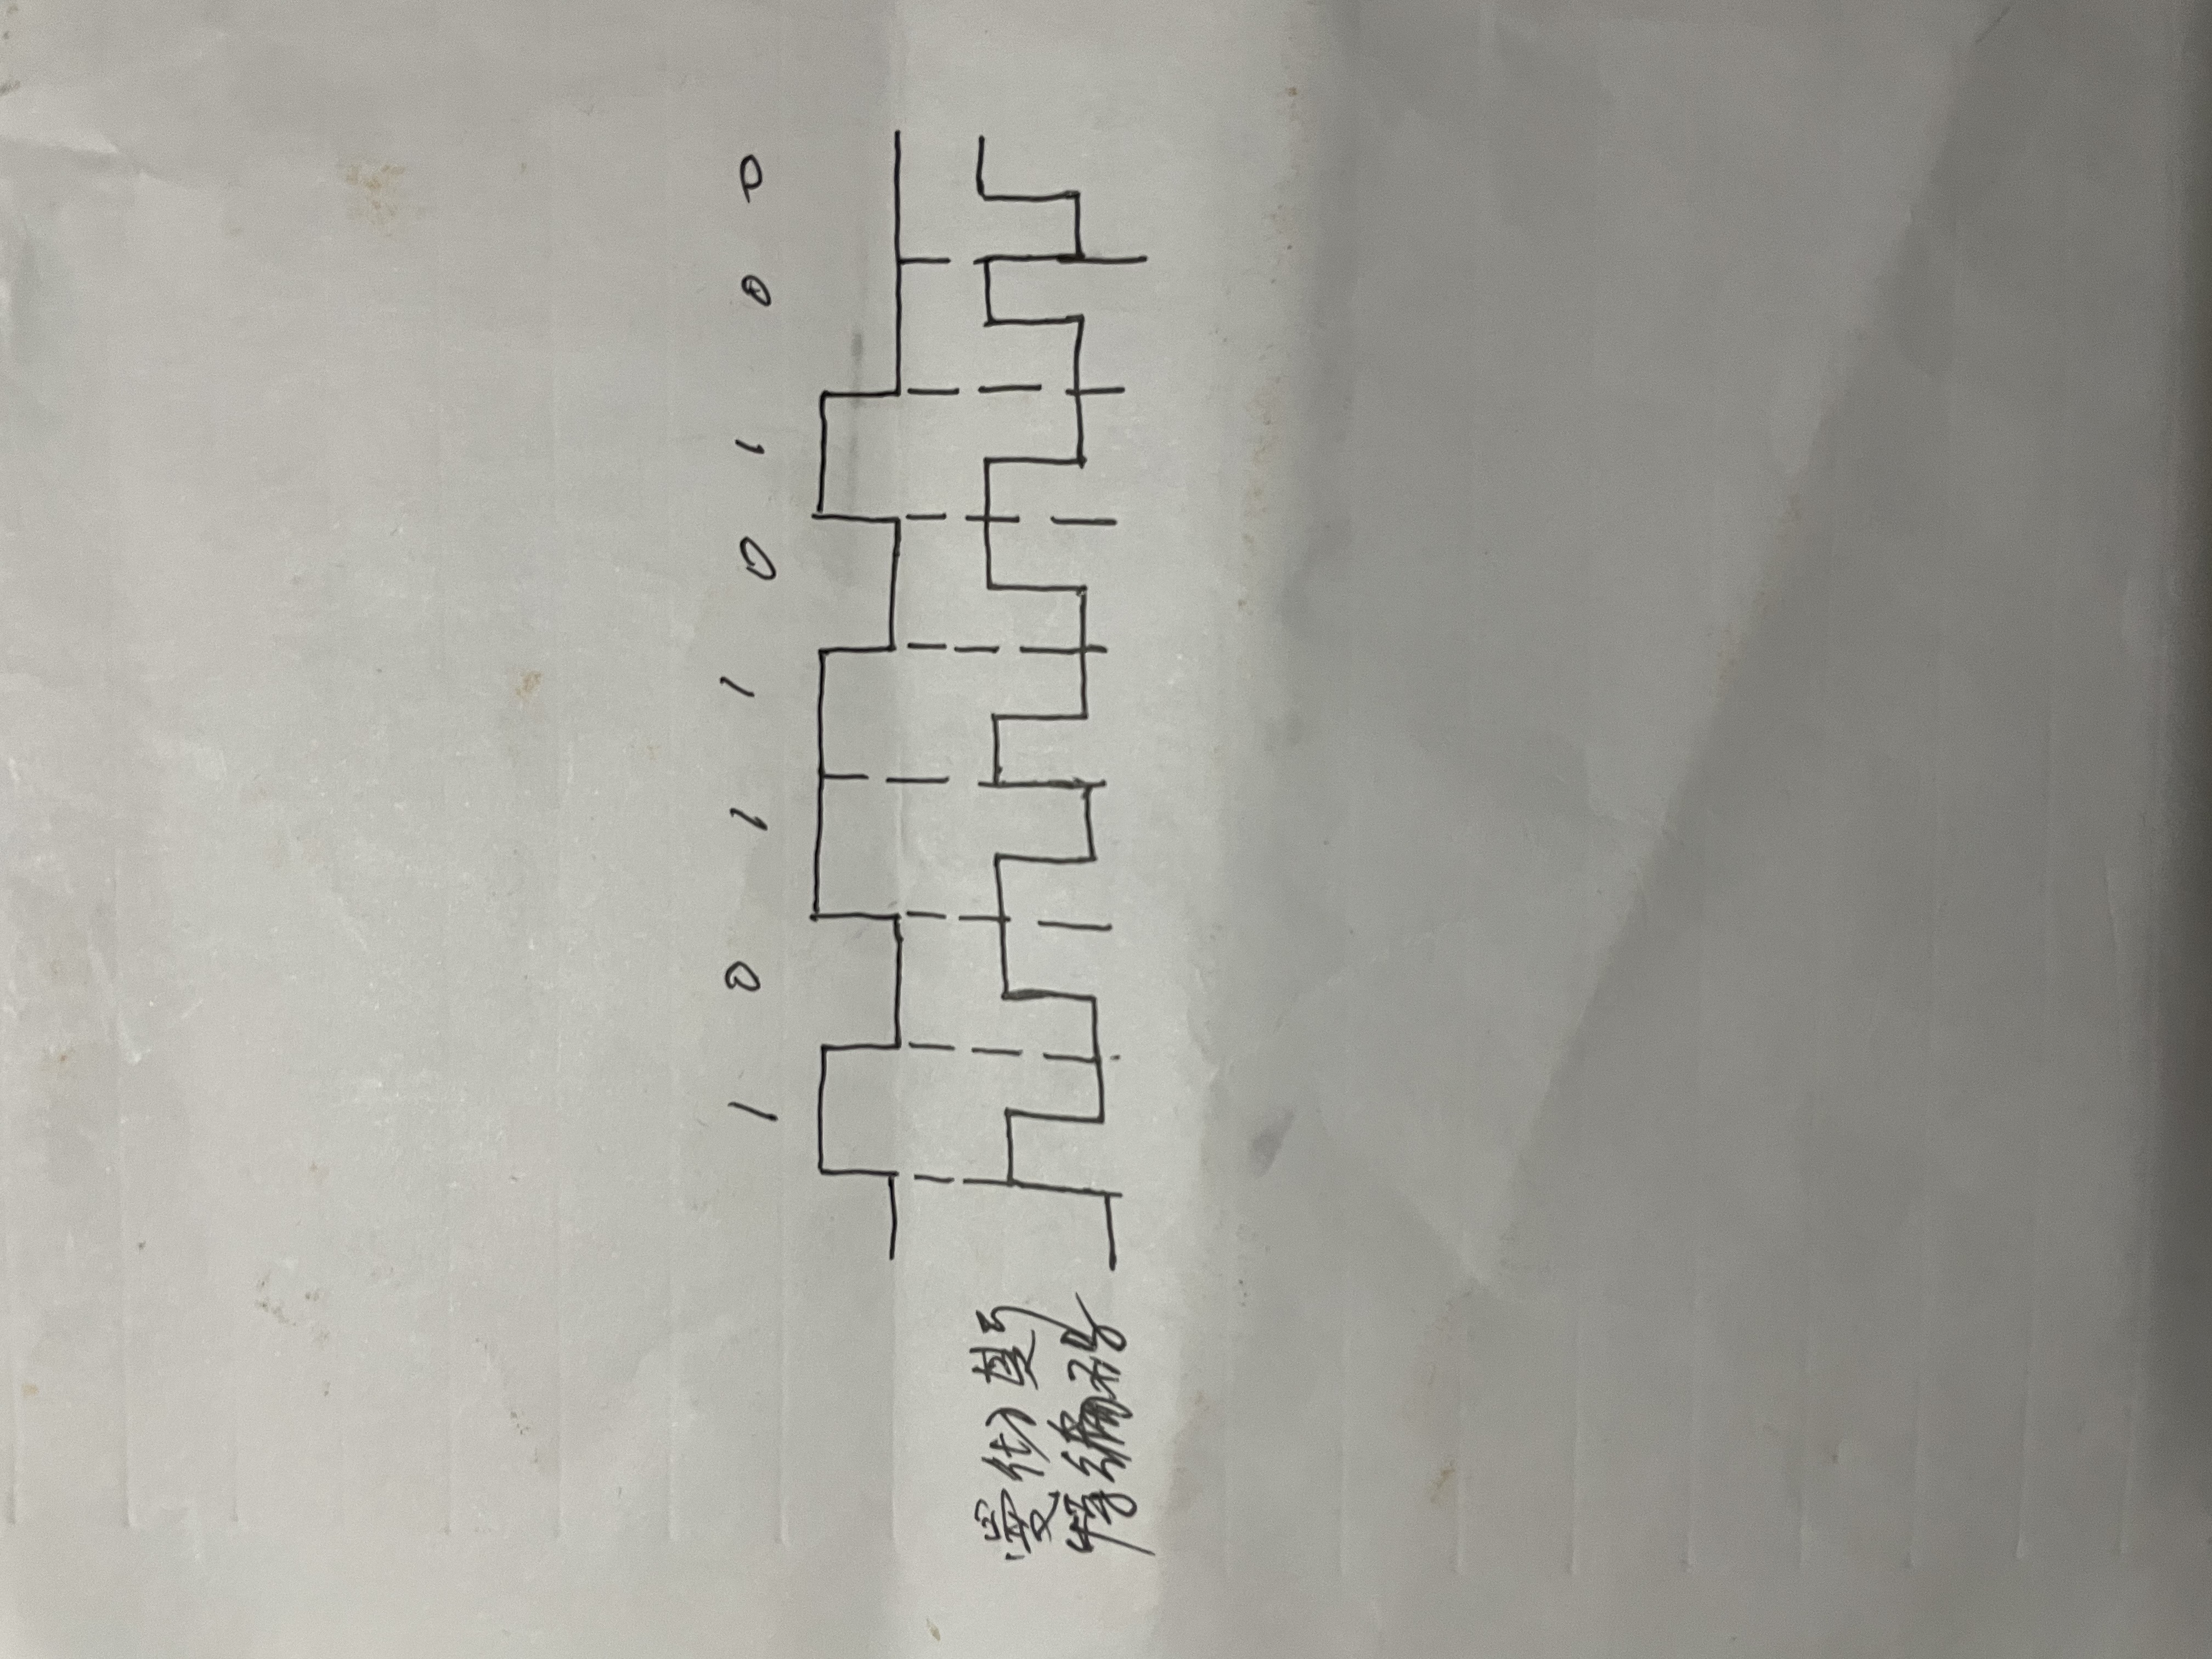 1 0 1 1 0 1 0 0
曼彻斯
特编码